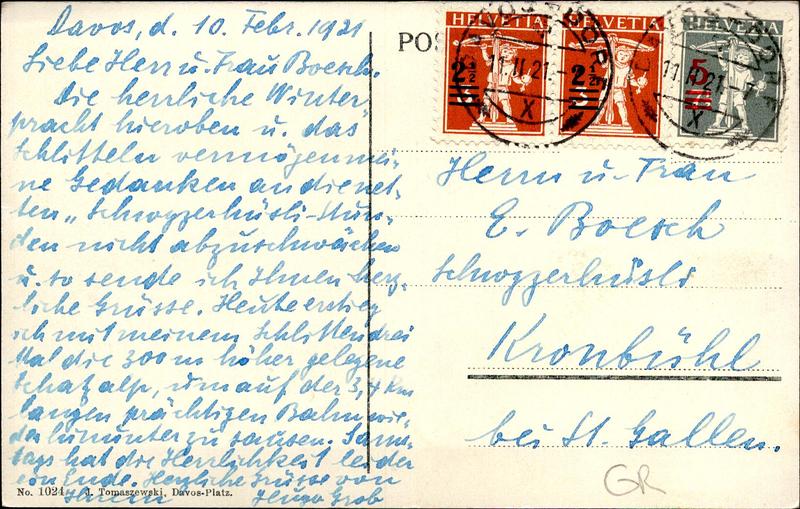 Davos, d. 10. Febr. 1921
Liebe Herr u. Frau Boesch.
Die herrliche Winter
pracht hieroben u. das
Schlitteln vermögen mei
ne Gedanken an die net-
ten „Schoggerhüsli-Stun-
den nicht abzuschwächen
u. so sende ich Ihnen herz-
liche Grüsse. Heute erstieg
ich mit meinem Schlitten drei
Mal die 300 m höher gelegene
Schatzalp, um auf der 3,4 km
langen prächtigen Bahn wie-
der hinunter zu sausen. Sams-
tags hat die Herrlichkeit leider
ein Ende. Herzliche Grüsse von
Ihrem Hugo Grob
No. 1024 J. Tomaszewski, Davos-Platz.
POS
HELVETIA HELVETIA HELVETIA
2 1/2 2 1/2 5
3 3
11.II.21. 11.II.21.
X X
Herrn u. Frau
E. Boesch
Schoggerhüsli
Kronbühl
bei St. Gallen.
GR